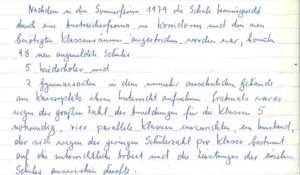 Nachdem in den Sommerferien 1979 die Schule termingerecht
durch eine Anstreicherfirma in Korridoren und den neu
benötigten Klassenräumen angestrichen worden war, konnten
98 neu angemeldete Schüler
5 Wiederholer und
2 Gymnasiasten in dem nunmehr ansehnlichen Gebäude
am Kaiserplatz ihren Unterricht aufnehmen. Erstmals war es
wegen der großen Zahl der Anmeldungen für die Klassen 5
notwendig, vier parallele Klassen einzurichten, ein Umstand,
der sich wegen der geringen Schülerzahl pro Klasse bestimmt
auf die unterrichtliche Arbeit und die Leistungen der
Schüler auswirken dürfte.